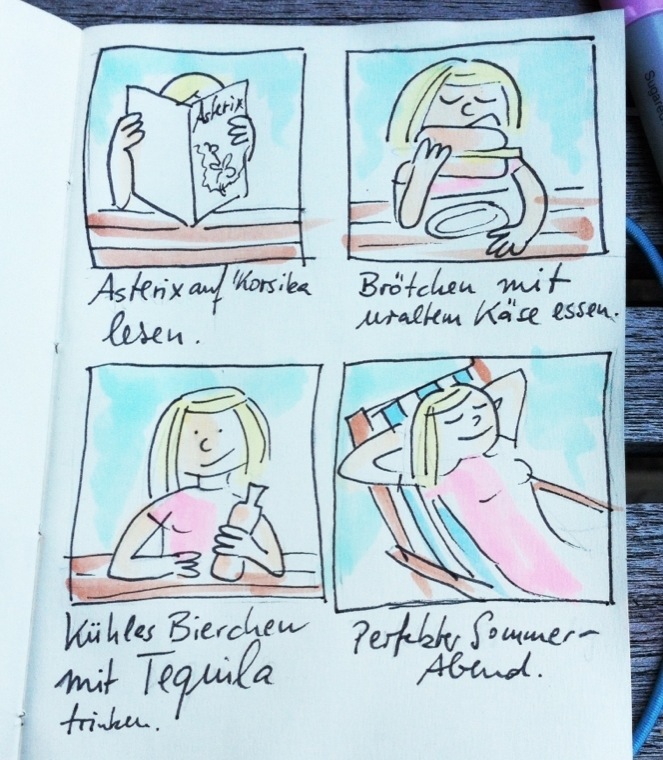 Asterix
Asterix auf Korsika
lesen.
Brötchen mit
uraltem Käse essen.
Kühles Bierchen
mit Tequila
trinken.
Perfekter Sommer-
Abend.